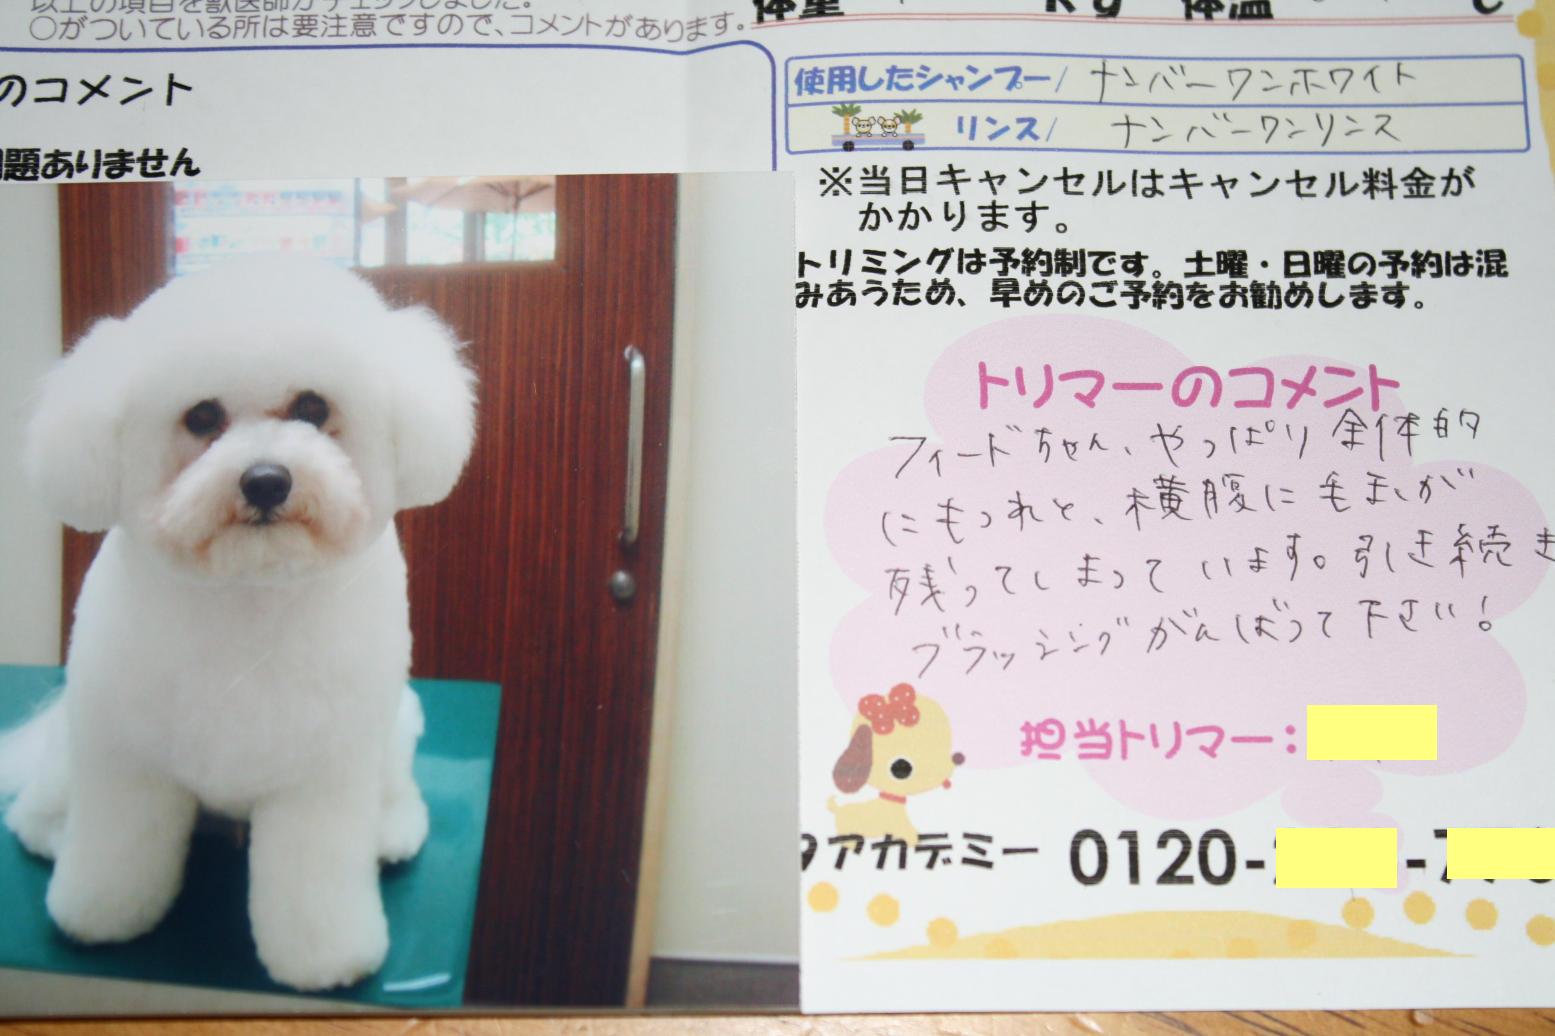 以上の項目を獣医師がチェックしました。
○がついている所は要注意ですので、コメントがあります。
のコメント
問題ありません
体重 Kg 体温 ℃
使用したシャンプー/ ナンバーワンホワイト
リンス/ ナンバーワンリンス
※当日キャンセルはキャンセル料金が
かかります。
トリミングは予約制です。土曜・日曜の予約は混
みあうため、早めのご予約をお勧めします。
トリマーのコメント
フィードちゃん、やっぱり全体的
にもつれと、横腹に毛玉が
残ってしまっています。引き続き
ブラッシングがんばって下さい!
担当トリマー:
アカデミー 0120- -7